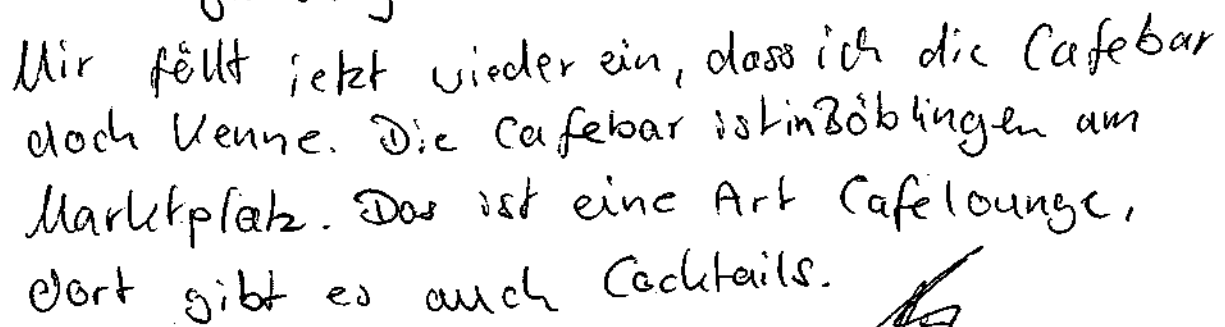 Mir fällt jetzt wieder ein, dass ich die Cafebar
doch kenne. Die Cafebar ist in Böblingen am
Marktplatz. Das ist eine Art Cafelounge,
dort gibt es auch Cocktails.